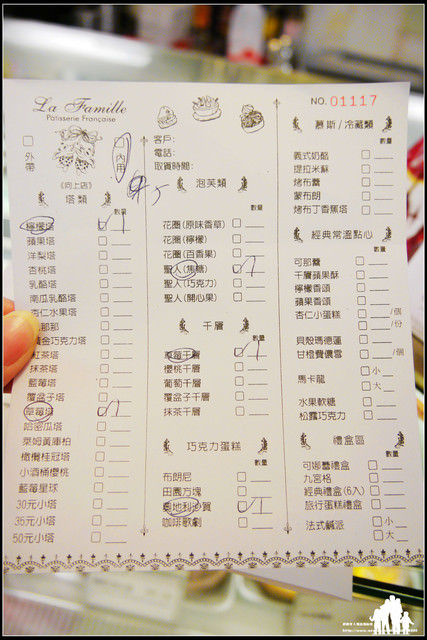 La Famille
Patisserie Française
外帶
內用
《向上店》
塔類
數量
檸檬塔 1
蘋果塔
洋梨塔
杏桃塔
乳酪塔
南瓜乳酪塔
杏仁水果塔
那那
金巧克力塔
紅茶塔
抹茶塔
藍莓塔
覆盆子塔
草莓塔 1
哈密瓜塔
萊姆黃庫柏
橄欖桂冠塔
小酒桶櫻桃
藍莓星球
30元小塔
35元小塔
50元小塔
客戶:
電話:
取貨時間:
泡芙類
數量
花圈(原味香草)
花圈(檸檬)
花圈(百香果)
聖人(焦糖) 1
聖人(巧克力)
聖人(開心果)
千層
數量
草莓千層 1
櫻桃千層
葡萄千層
覆盆子千層
抹茶千層
巧克力蛋糕
數量
布朗尼
田園方塊
奧地利沙賀 1
咖啡歌劇
NO. 01117
慕斯/冷藏類
數量
義式奶酪
提拉米酥
烤布蕾
蒙布朗
烤布丁香蕉塔
經典常溫點心
數量
可那蕾
千層蘋果酥
檸檬香頌
蘋果香頌
杏仁小蛋糕 /個
/份
貝殼瑪德蓮
甘橙費儂雪 /個
馬卡龍 小
大
水果軟糖
松露巧克力
禮盒區
數量
可娜蕾禮盒
九宮格
經典禮盒(6入)
旅行蛋糕禮盒
法式鹹派 小
大